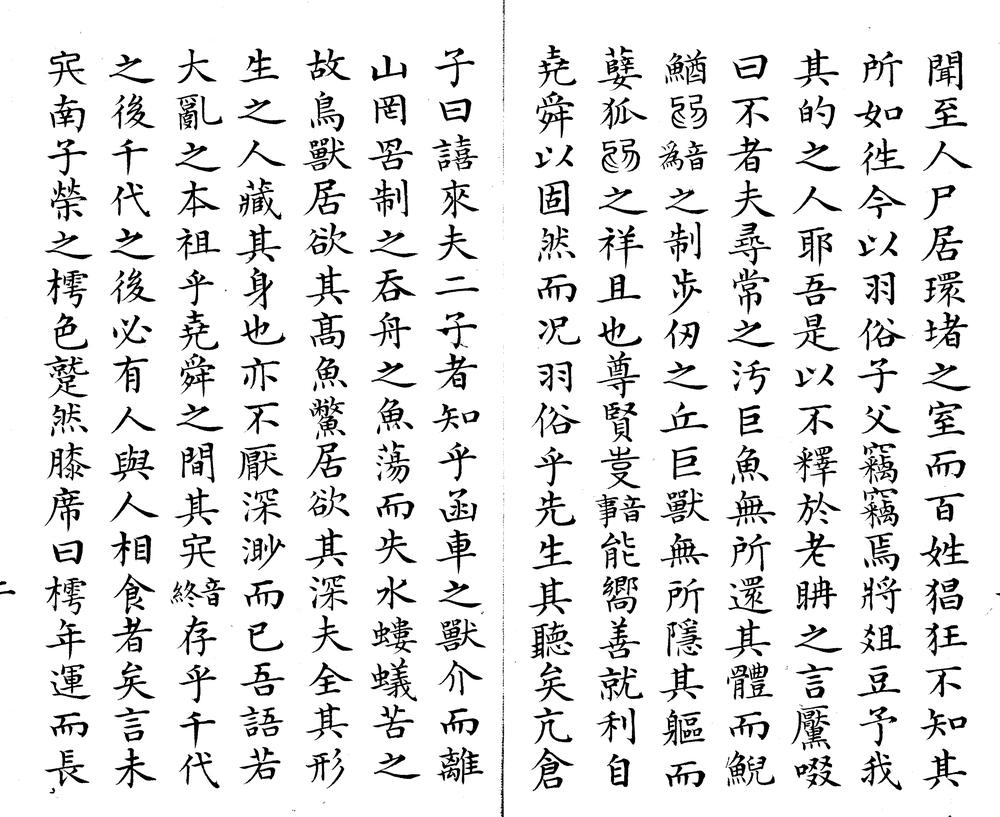 聞至人尸居環堵之室而百姓猖狂不知其
所如徃今以羽俗子父竊竊焉將俎豆予我
其的之人耶吾是以不釋於老聃之言黶啜
曰不者夫尋常之汚巨魚無所還其體而鯢
鰌音爲之制步仞之丘巨獸無所隱其軀而
孽狐之祥且也尊賢叓音事能嚮善就利自
堯舜以固然而况羽俗乎先生其聽矣亢倉
子曰譆來夫二子者知乎函車之獸介而離
山罔罟制之吞舟之魚蕩而失水螻蟻苦之
故鳥獸居欲其髙魚鱉居欲其深夫全其形
生之人藏其身也亦不厭深渺而已吾語若
大亂之本祖乎堯舜之間其音終存乎千代
之後千代之後必有人與人相食者矣言未
南子榮之樗色蹵然膝席曰樗年運而長